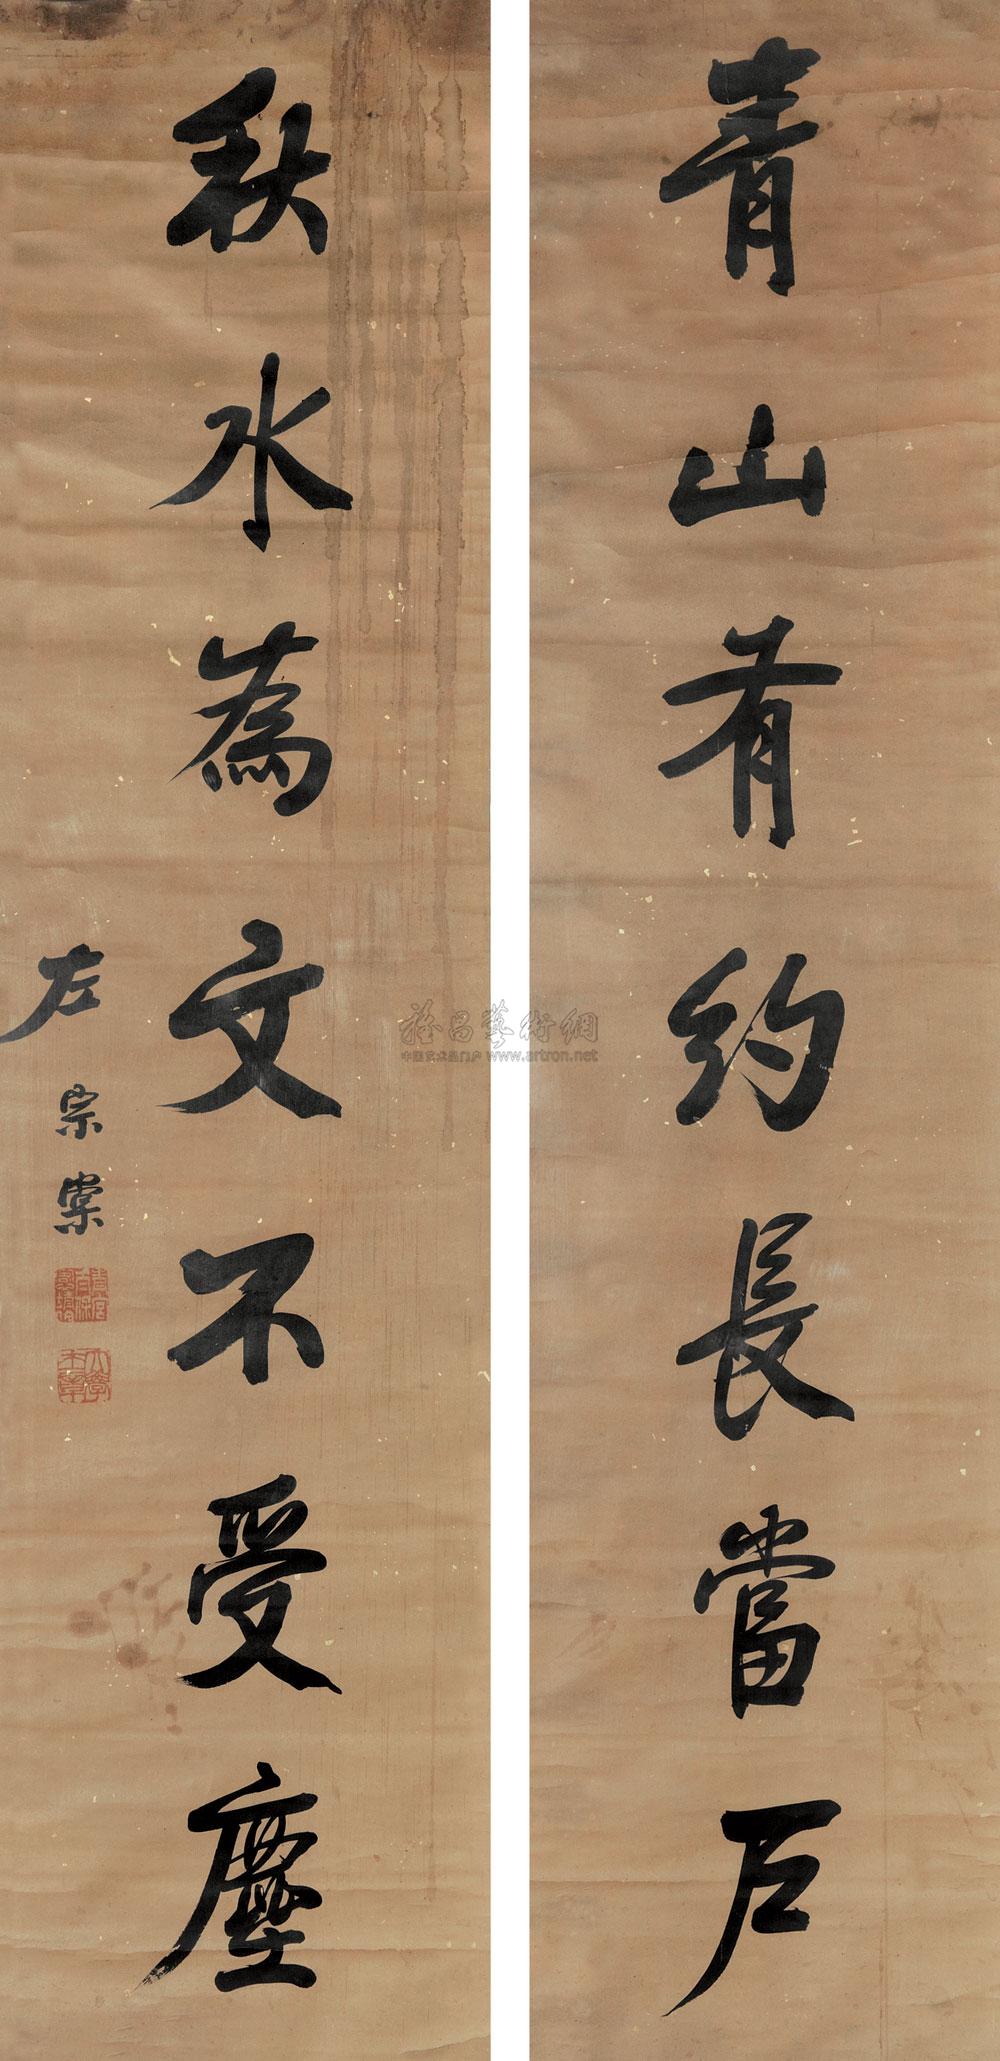 青山有約長當戶
秋水為文不受塵
左宗棠
雅昌藝術網
中国艺术品门户 www.artron.net
大學士章